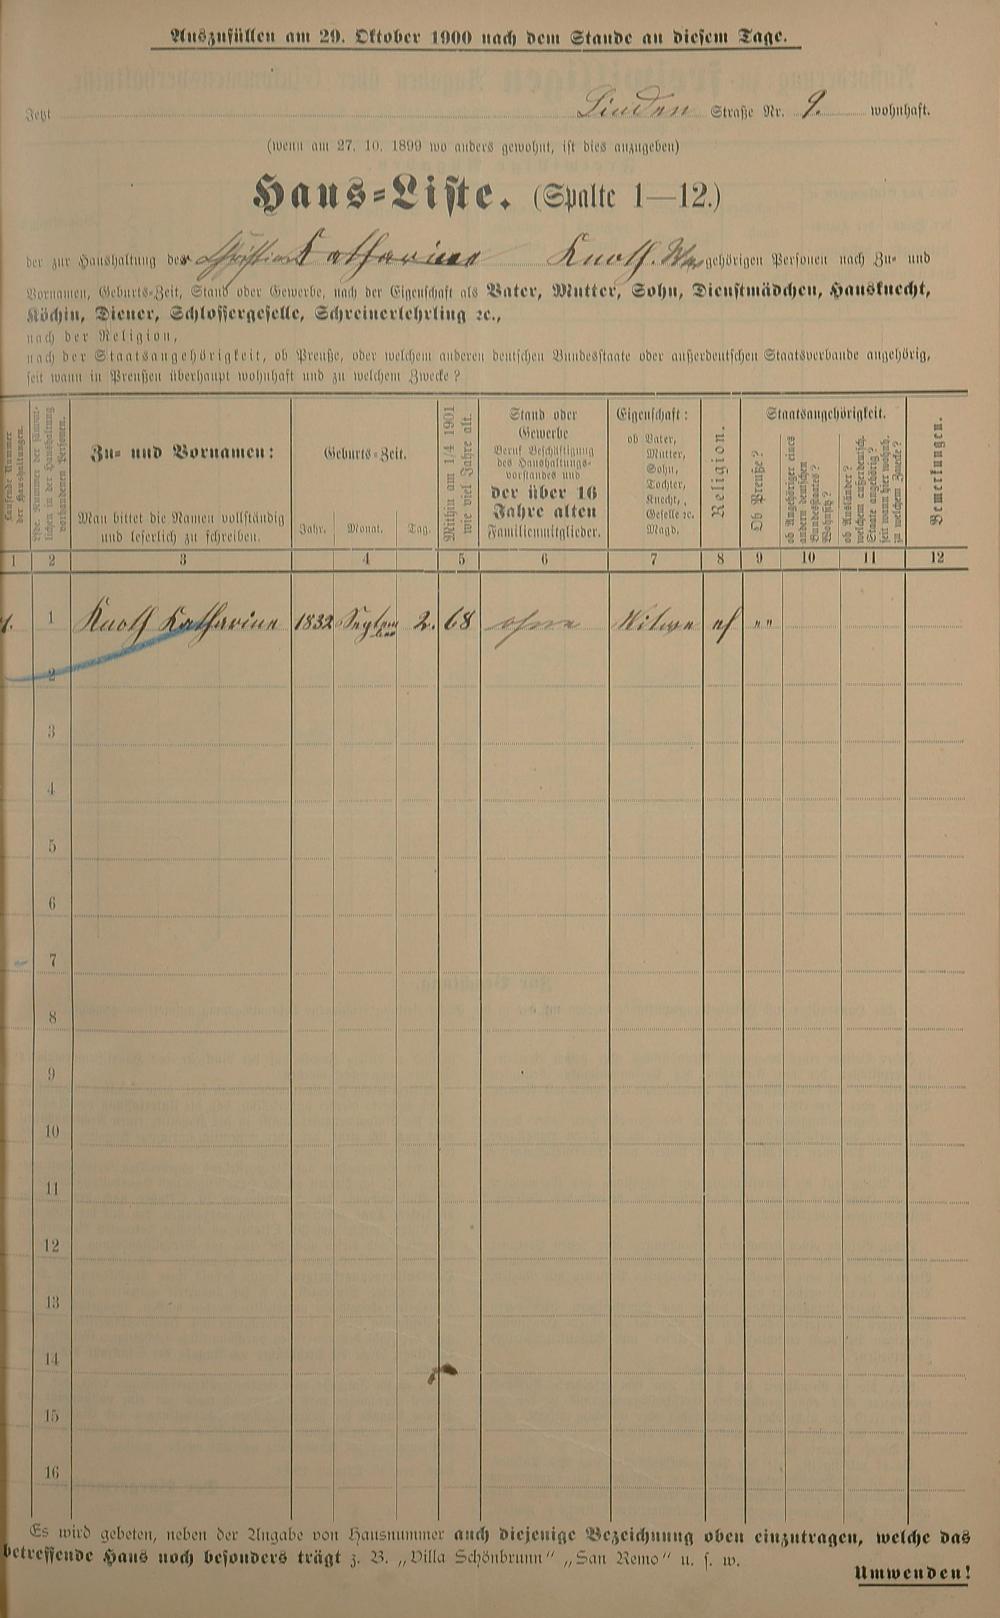 Auszufüllen am 29. Oktober 1900 nach dem Stande an diesem Tage.
Jetzt Linden Straße Nr. 9. wohnhaft.
(wenn am 27. 10. 1899 wo anders gewohnt, ist dies anzugeben)
Haus=Liste. (Spalte 1—12.)
der zur Haushaltung der Christian Katharine Knoth. gehörigen Personen nach Zu= und
Vornamen, Geburts=Zeit, Stand oder Gewerbe, nach der Eigenschaft als Vater, Mutter, Sohn, Dienstmädchen, Hausknecht,
Köchin, Diener, Schlossergeselle, Schreinerlehrling ꝛc.,
nach der Religion,
nach der Staatsangehörigkeit, ob Preuße, oder welchem anderen deutschen Bundesstaate oder außerdeutschen Staatsverbande angehörig,
seit wann in Preußen überhaupt wohnhaft und zu welchem Zwecke?
Laufende Nummer
der Haushaltungen.
Lfde. Nummer der sämmt=
lichen in der Haushaltung
vorhandenen Personen.
Zu= und Vornamen:
Man bittet die Namen vollständig
und leserlich zu schreiben.
Geburts=Zeit.
Jahr. Monat. Tag.
Mithin am 1/4 1901
wie viel Jahre alt.
Stand oder
Gewerbe
Beruf Beschäftigung
des Haushaltungs=
vorstandes und
der über 16
Jahre alten
Familienmitglieder.
Eigenschaft:
ob Vater,
Mutter,
Sohn,
Tochter,
Knecht,
Geselle ꝛc.
Magd.
Religion.
Staatsangehörigkeit.
Ob Preuße?
ob Angehöriger eines
andern deutschen
Bundesstaates?
Wohnsitz?
ob Ausländer?
welchem außerdeutsch.
Staate angehörig?
seit wann hier wohnh.
zu welchem Zwecke?
Bemerkungen.
1 2 3 4 5 6 7 8 9 10 11 12
1 Knoth Katharine 1832 September 2. 68 ohne Witwe ef " "
2
3
4
5
6
7
8
9
10
11
12
13
14
15
16
Es wird gebeten, neben der Angabe von Hausnummer auch diejenige Bezeichnung oben einzutragen, welche das
betreffende Haus noch besonders trägt z. B. „Villa Schönbrunn" „San Remo" u. s. w.
Umwenden!